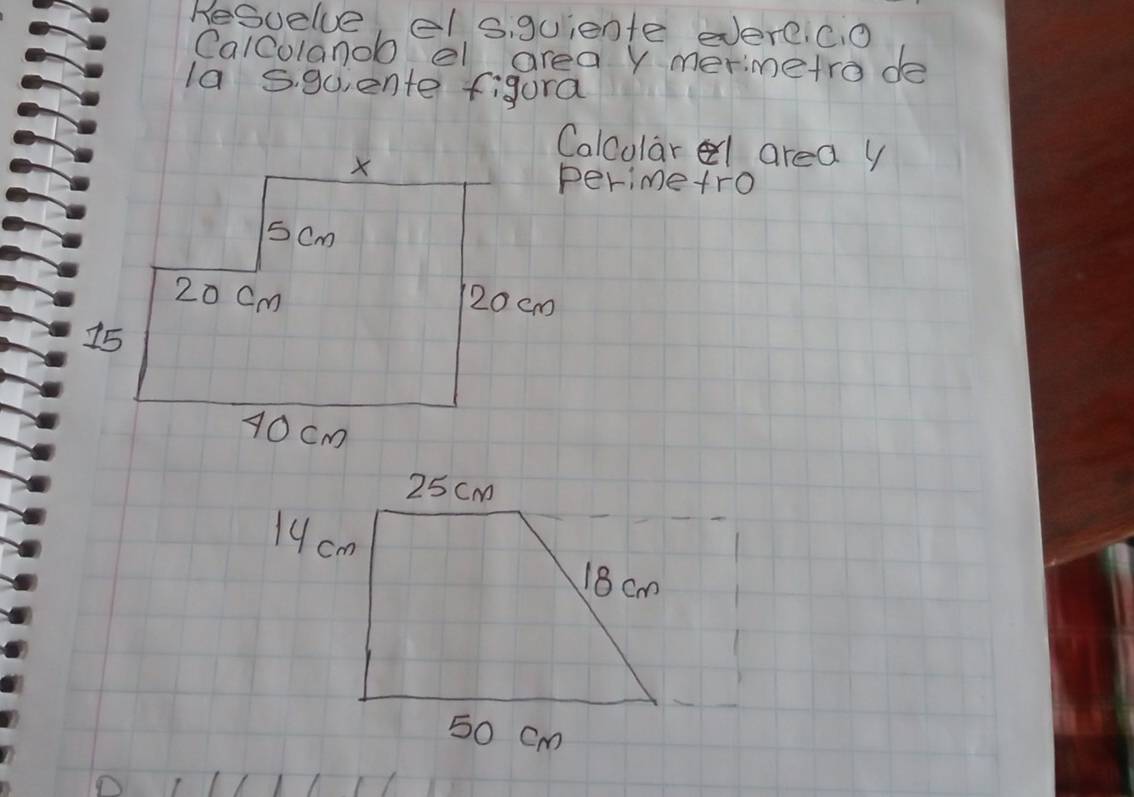 Resuelve el siguiente evercicio
Calculanob el area y merimetro de
la siguiente figura
Calcular el area y
perimetro
x
5 cm
20 cm
20 cm
15
40 cm
25 cm
14 cm
18 cm
50 cm